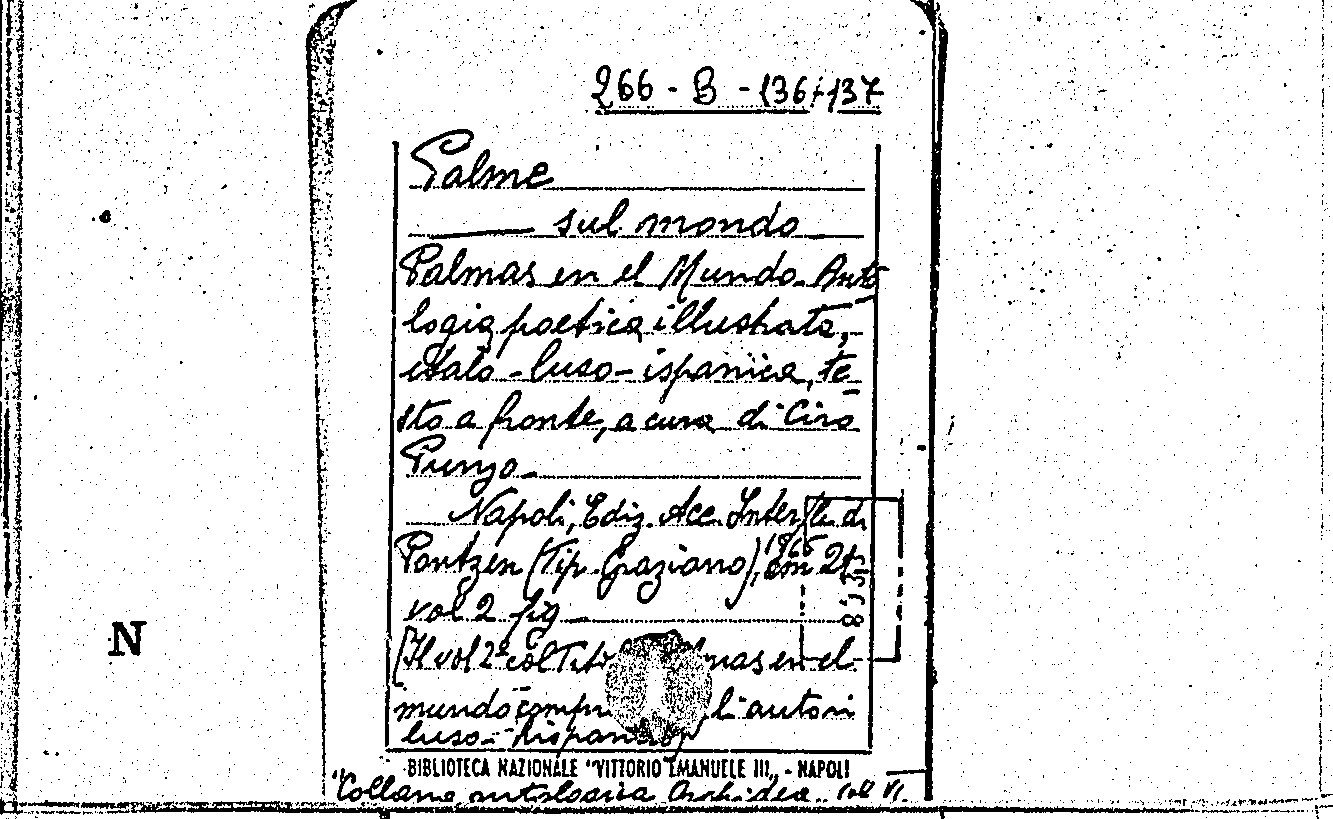 266 - B - 136/-137
Palme
sul mondo
Palmas en el Mundo. Anto
logia poetica illustrata,
italo-luso-ispanica, te-
sto a fronte, a cura di Ciro
Punzo
Napoli, Ediz. Acc. Inter/le di
Pontzen (Tip. Graziano), 1965 cm 24
vol 2 fig
[Il vol 2° col Tito mas en el
mundo gli autori
luso-hispan
BIBLIOTECA NAZIONALE "VITTORIO EMANUELE III" - NAPOLI
"Collana antologica Orchidea" vol VI.
N